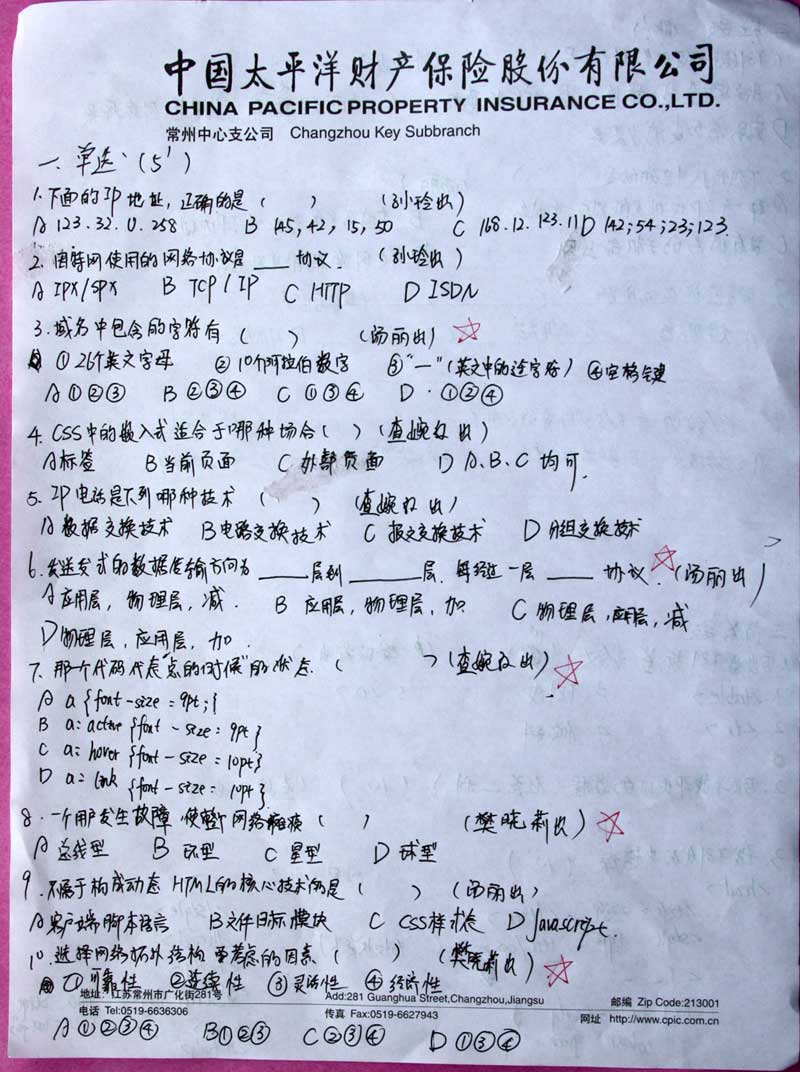 中国太平洋财产保险股份有限公司
CHINA PACIFIC PROPERTY INSURANCE CO.,LTD.
常州中心支公司 Changzhou Key Subbranch
一、单选（5'）
1. 下面的IP地址，正确的是（ ） （孙玲出）
A 123.32.0.258 B 145,42,15,50 C 168.12.123.11 D 142;54;23;123
2. 因特网使用的网络协议是____协议. （孙玲出）
A IPX/SPX B TCP/IP C HTTP D ISDN
3. 域名中包含的字符有（ ） （汤丽出）
①26个英文字母 ②10个阿拉伯数字 ③"—"（英文中的连字符） ④空格键
A①②③ B②③④ C①③④ D.①②④
4. CSS中的嵌入式适合于哪种场合（ ）（查婉 出）
A标签 B当前页面 C外部页面 D A、B、C均可.
5. IP电话是下列哪种技术（ ） （查婉 出）
A数据交换技术 B电路交换技术 C报文交换技术 D分组交换技术
6. 发送方式的数据传输方向为____层到____层. 每经过一层____协议.（汤丽出）
A应用层，物理层，减. B 应用层，物理层，加. C物理层，应用层，减
D物理层，应用层，加.
7. 那个代码代表"点的时候"的状态.（ ）（查婉 出）
A a{font-size=9pt;}
B a:active{font-size=9pt}
C a:hover{font-size=10pt}
D a:link{font-size=10pt}
8. 一个用户发生故障，使整个网络瘫痪（ ） （樊晓莉出）
A总线型 B 环型 C星型 D球型
9. 不属于构成动态HTML的核心技术的是（ ） （汤丽出）
A客户端脚本语言 B文件目标模块 C CSS样式表 D Javascript.
10. 选择网络拓扑结构 要考虑的因素.（ ） （樊晓莉出）
①可靠性 ②连续性 ③灵活性 ④经济性
地址: 江苏常州市广化街281号 Add:281 Guanghua Street,Changzhou,Jiangsu 邮编 Zip Code:213001
电话 Tel:0519-6636306 传真 Fax:0519-6627943 网址 http://www.cpic.com.cn
A①②③④ B①②③ C②③④ D①③④